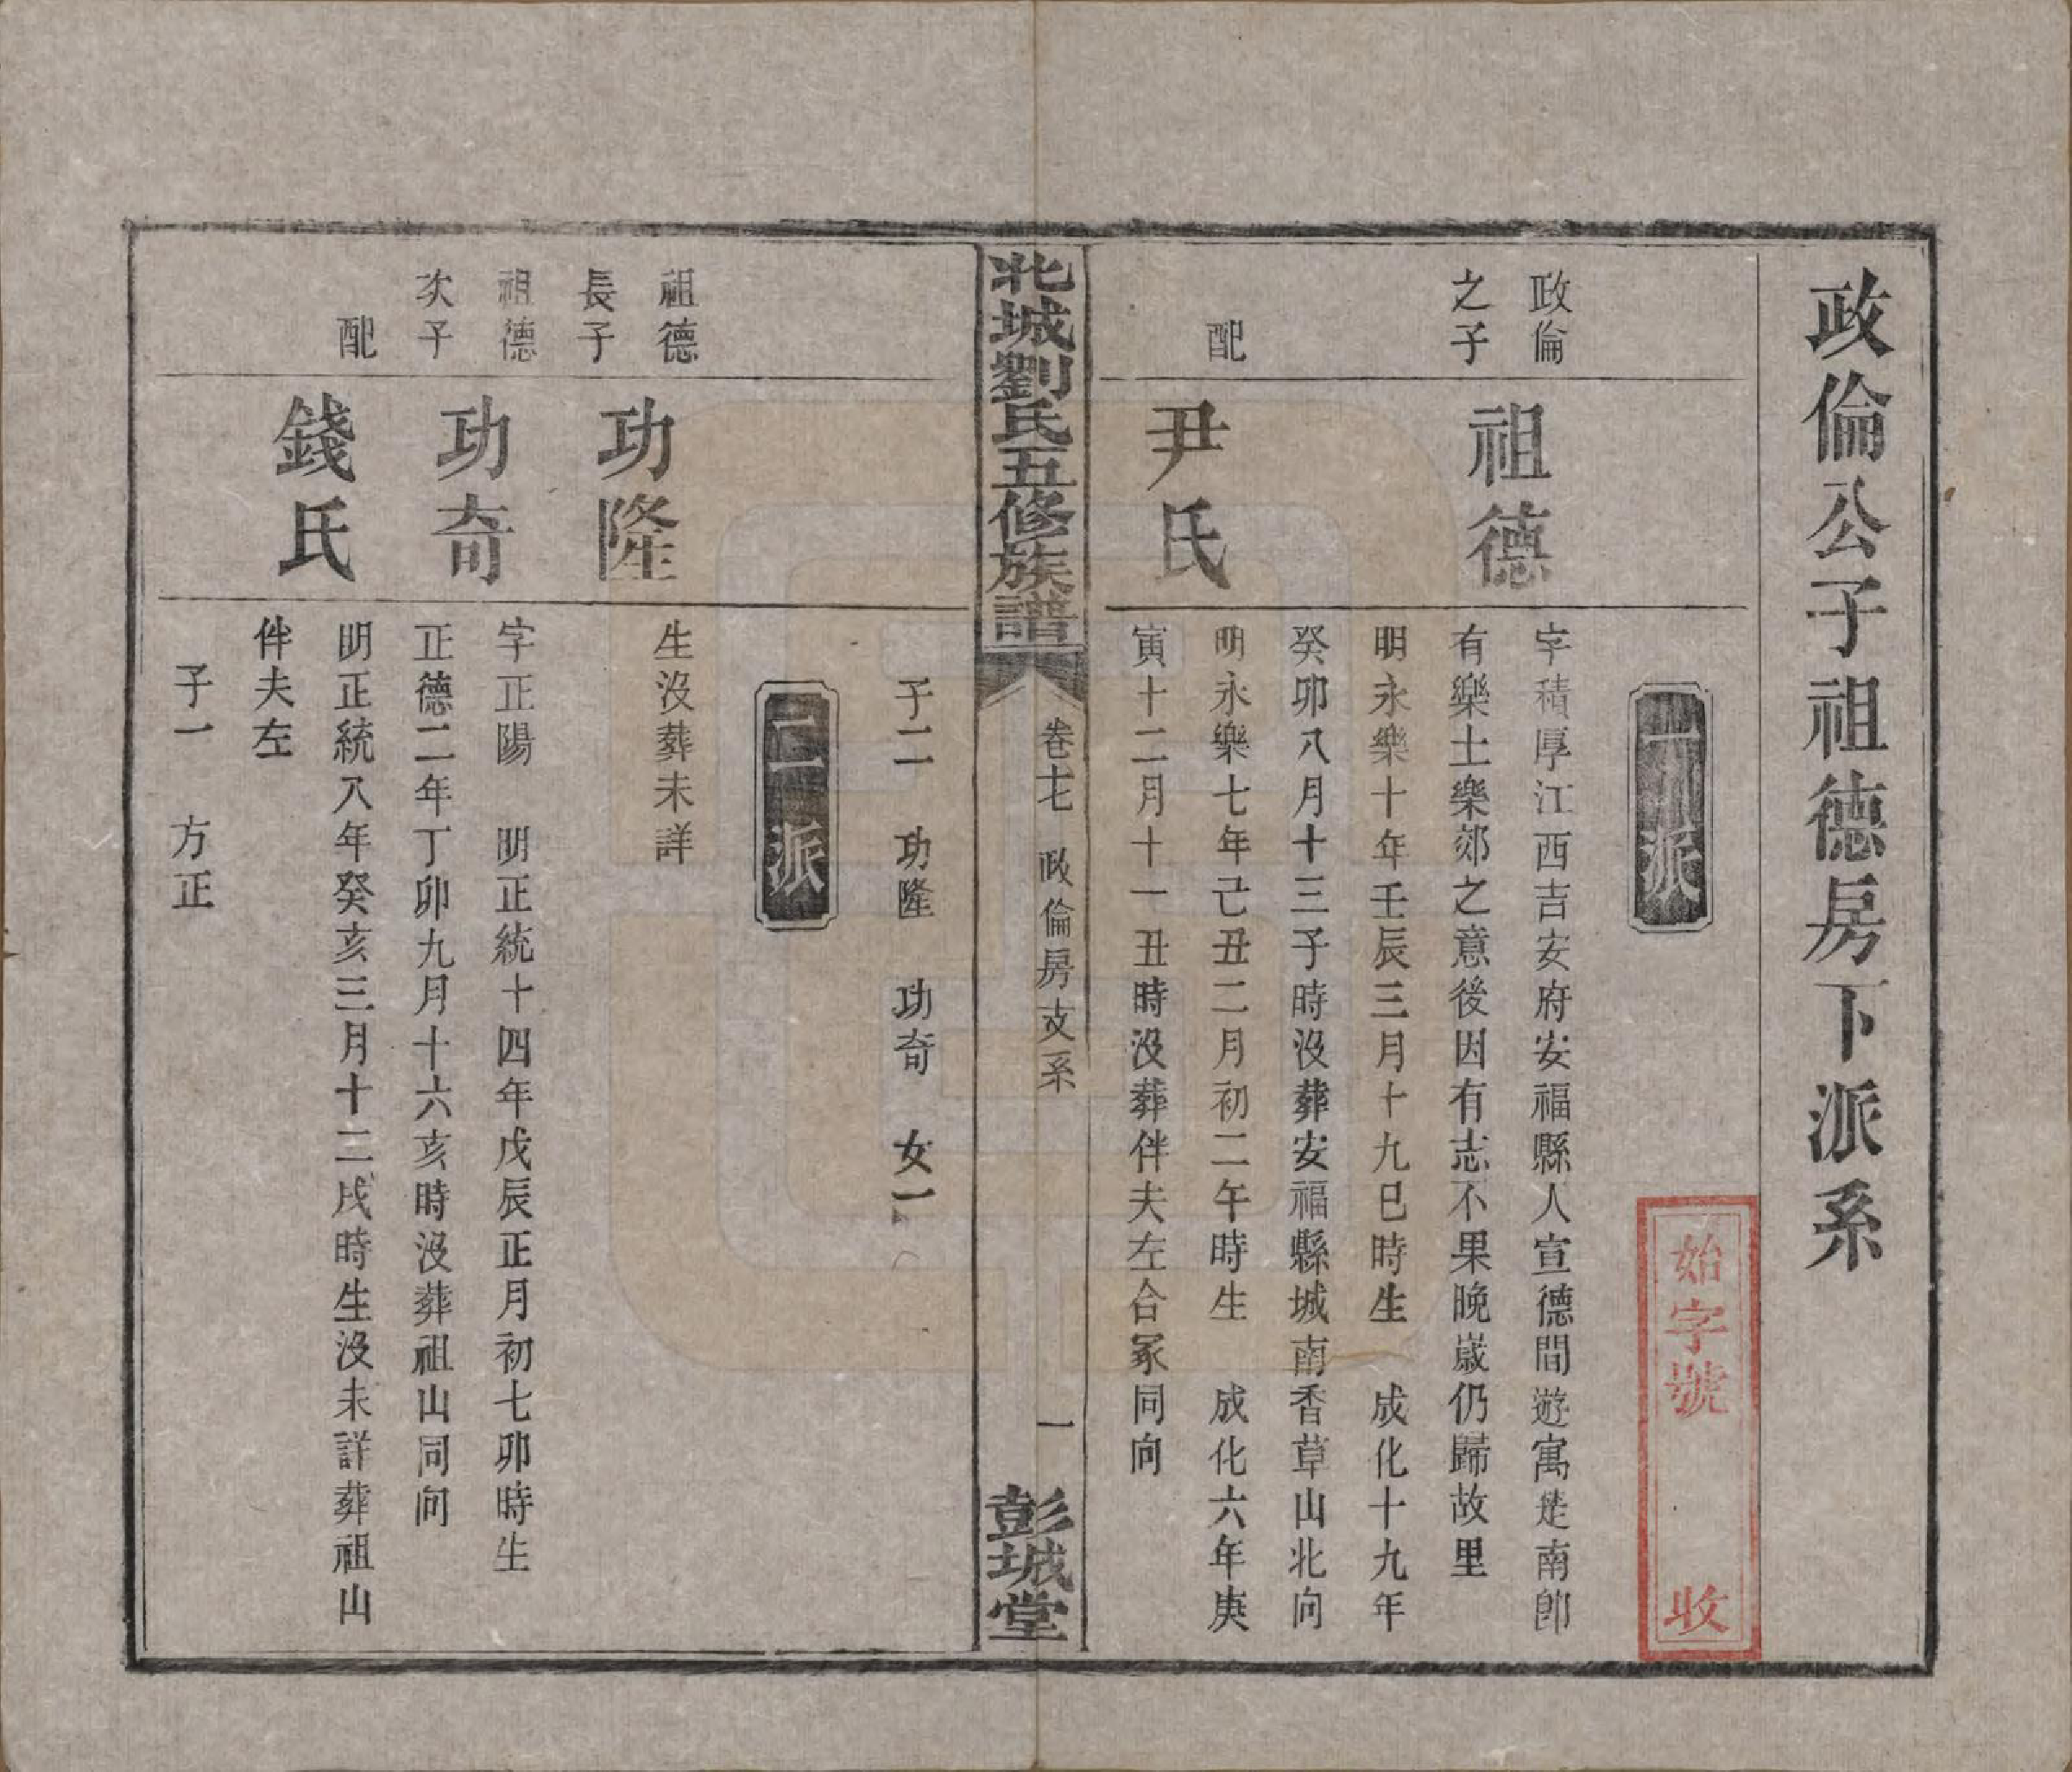 政倫公子祖德房下派系
始字號 收
一派
政倫
之子
祖德
字積厚江西吉安府安福縣人宣德間遊寓楚南卽
有樂土樂郊之意後因有志不果晚歲仍歸故里
明永樂十年壬辰三月十九巳時生 成化十九年
癸卯八月十三子時沒葬安福縣城南香草山北向
配
尹氏
明永樂七年己丑二月初二午時生 成化六年庚
寅十二月十一丑時沒葬伴夫左合冢同向
北城劉氏五修族譜
卷七 政倫房支系
一
彭城堂
子二 功隆 功奇 女一
二派
祖德
長子
功隆
生沒葬未詳
祖德
次子
功奇
字正陽 明正統十四年戊辰正月初七卯時生
正德二年丁卯九月十六亥時沒葬祖山同向
配
錢氏
明正統八年癸亥三月十二戌時生沒未詳葬祖山
伴夫左
子一 方正